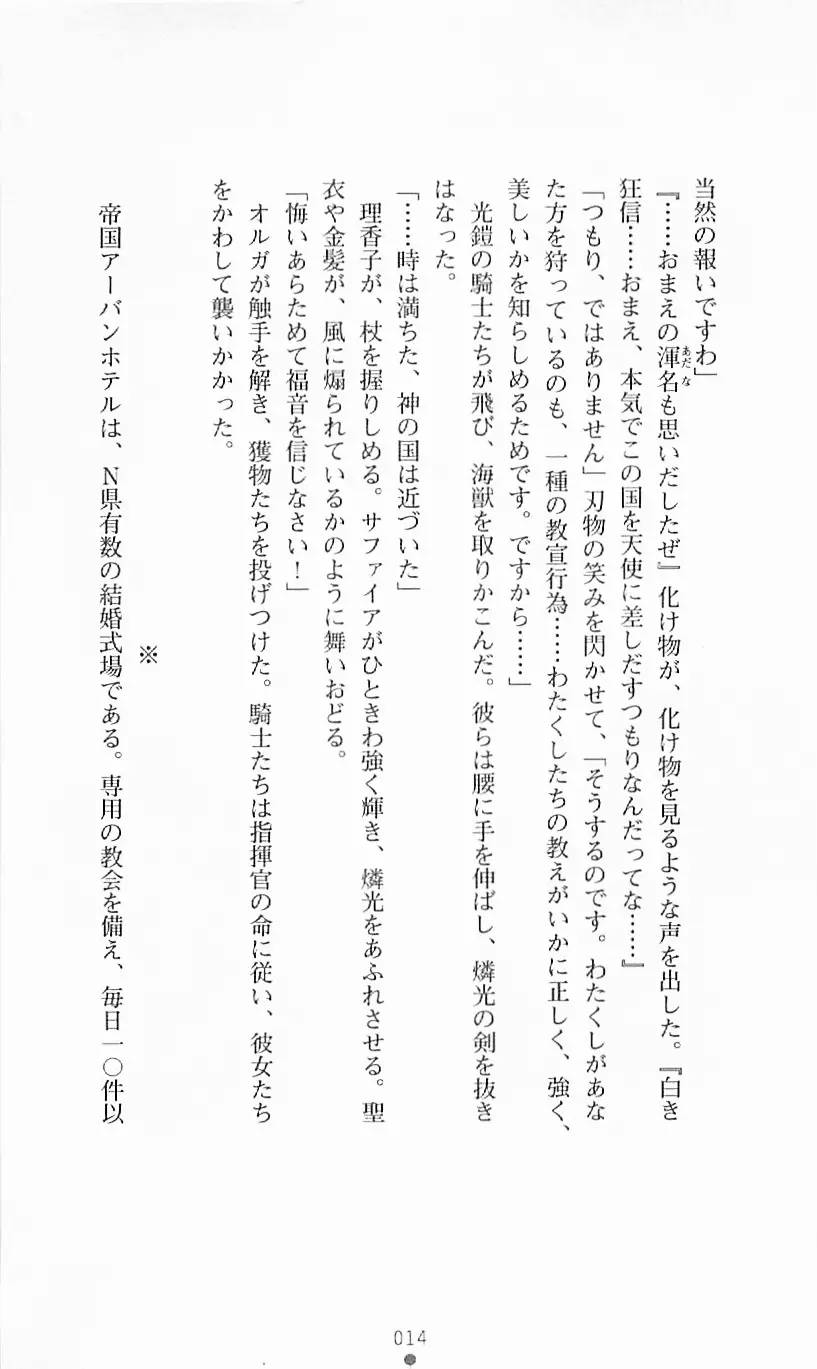 当然の報いですわ」
『……おまえの渾名も思いだしたぜ』化け物が、化け物を見るような声を出した。『白き
狂信……おまえ、本気でこの国を天使に差しだすつもりなんだってな……』
「つもり、ではありません」刃物の笑みを閃かせて、「そうするのです。わたくしがあな
た方を狩っているのも、一種の教宣行為……わたくしたちの教えがいかに正しく、強く、
美しいかを知らしめるためです。ですから……」
光鎧の騎士たちが飛び、海獣を取りかこんだ。彼らは腰に手を伸ばし、燐光の剣を抜き
はなった。
「……時は満ちた、神の国は近づいた」
理香子が、杖を握りしめる。サファイアがひときわ強く輝き、燐光をあふれさせる。聖
衣や金髪が、風に煽られているかのように舞いおどる。
「悔いあらためて福音を信じなさい！」
オルガが触手を解き、獲物たちを投げつけた。騎士たちは指揮官の命に従い、彼女たち
をかわして襲いかかった。
※
帝国アーバンホテルは、N県有数の結婚式場である。専用の教会を備え、毎日一〇件以
014